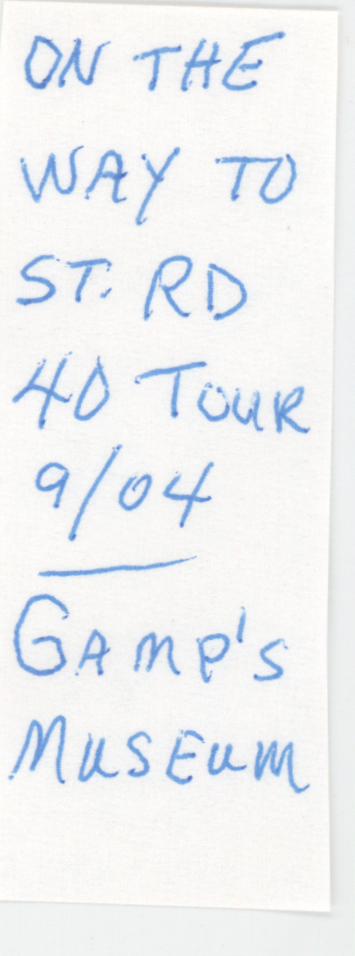 ON THE
WAY TO
ST. RD
40 TOUR
9/04
GAMP'S
MUSEUM